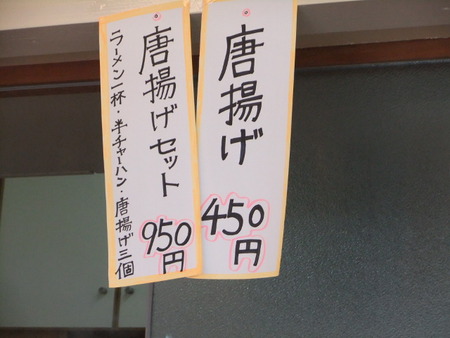 唐揚げ
450円
唐揚げセット
950円
ラーメン一杯・半チャーハン・唐揚げ三個